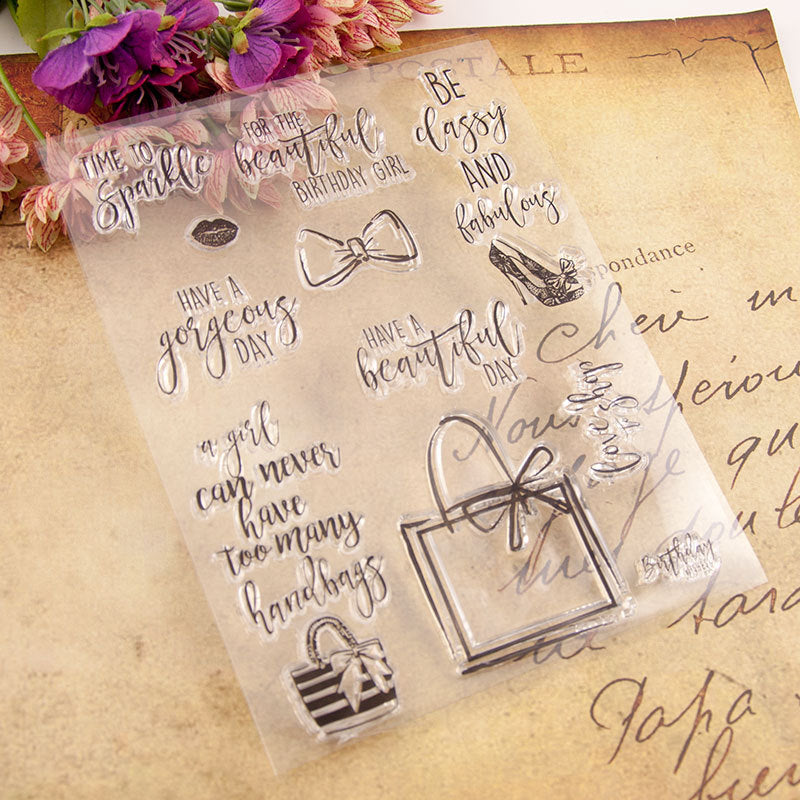 POSTALE
TIME TO
Sparkle
FOR THE
beautiful
BIRTHDAY GIRL
BE
classy
AND
fabulous
HAVE A
gorgeous
DAY
HAVE A
beautiful
DAY
a girl
can never
have
too many
handbags
Birthday
pondance
Chère
Nous
qu
Papa